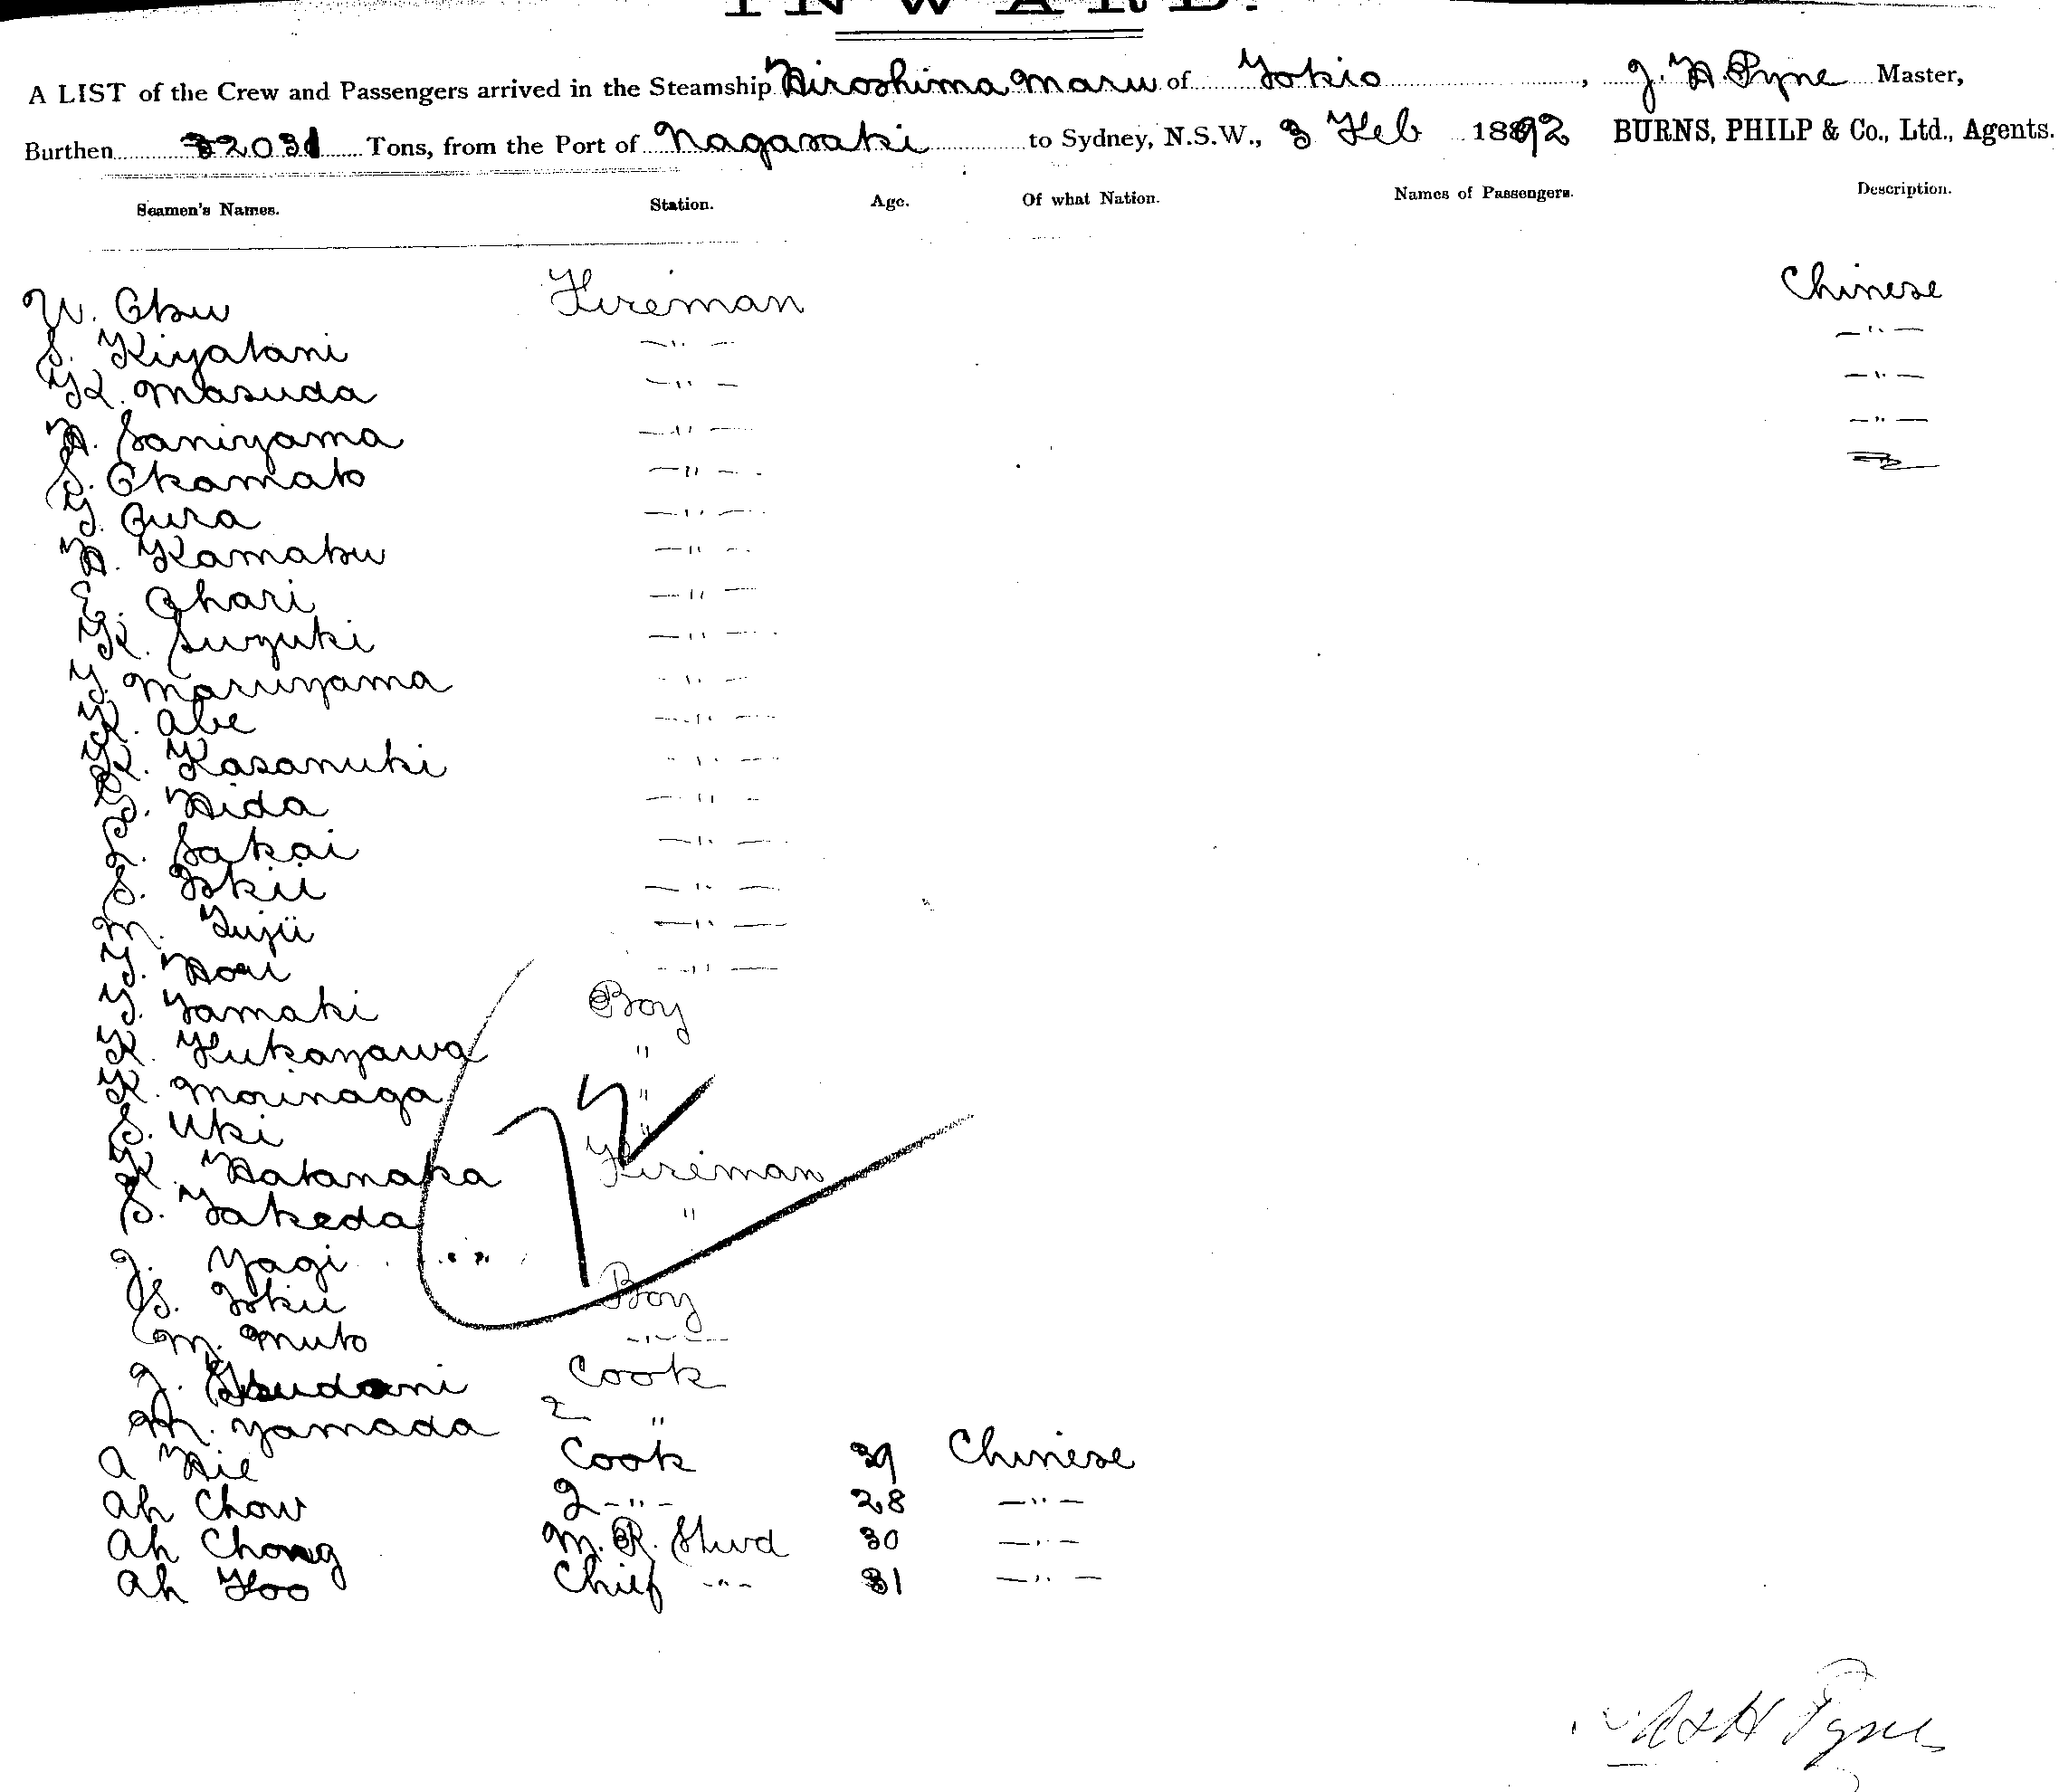 INWARD.
A LIST of the Crew and Passengers arrived in the Steamship Hiroshima Maru of Tokio, J. H. Pyne Master,
Burthen Tons, from the Port of Nagasaki to Sydney, N.S.W., 3 Feb 1892 BURNS, PHILP & Co., Ltd., Agents.
Seamen's Names. Station. Age. Of what Nation. Names of Passengers. Description.
Fireman Chinese
S. Kiyatani —"— —"—
K. Masuda —"— —"—
H. Saniyama —"— —"—
S. Okamato —"—
Y. Oura —"—
H. Kamatsu —"—
E. Ohari —"—
K. Suzuki —"—
Y. Maruyama —"—
K. Abe —"—
K. Kasanuki —"—
S. Hida —"—
Sakai —"—
S. Tokii —"—
M. Fujii —"—
Y. Hori —"—
Y. Yamaki Boy
K. Fukazawa "
K. Morinaga "
S. Uki "
K. Hatanaka Fireman
S. Takeda "
J. Yagi
S. Tokii Boy
M. Muto —"—
J. Cook
M. Yamada 2 "
A Hie Cook 39 Chinese
Ah Chow 2 —"— 28 —"—
Ah Chong M. R. Stwd 30 —"—
Ah Foo Chief —"— 31 —"—
72
Pyne